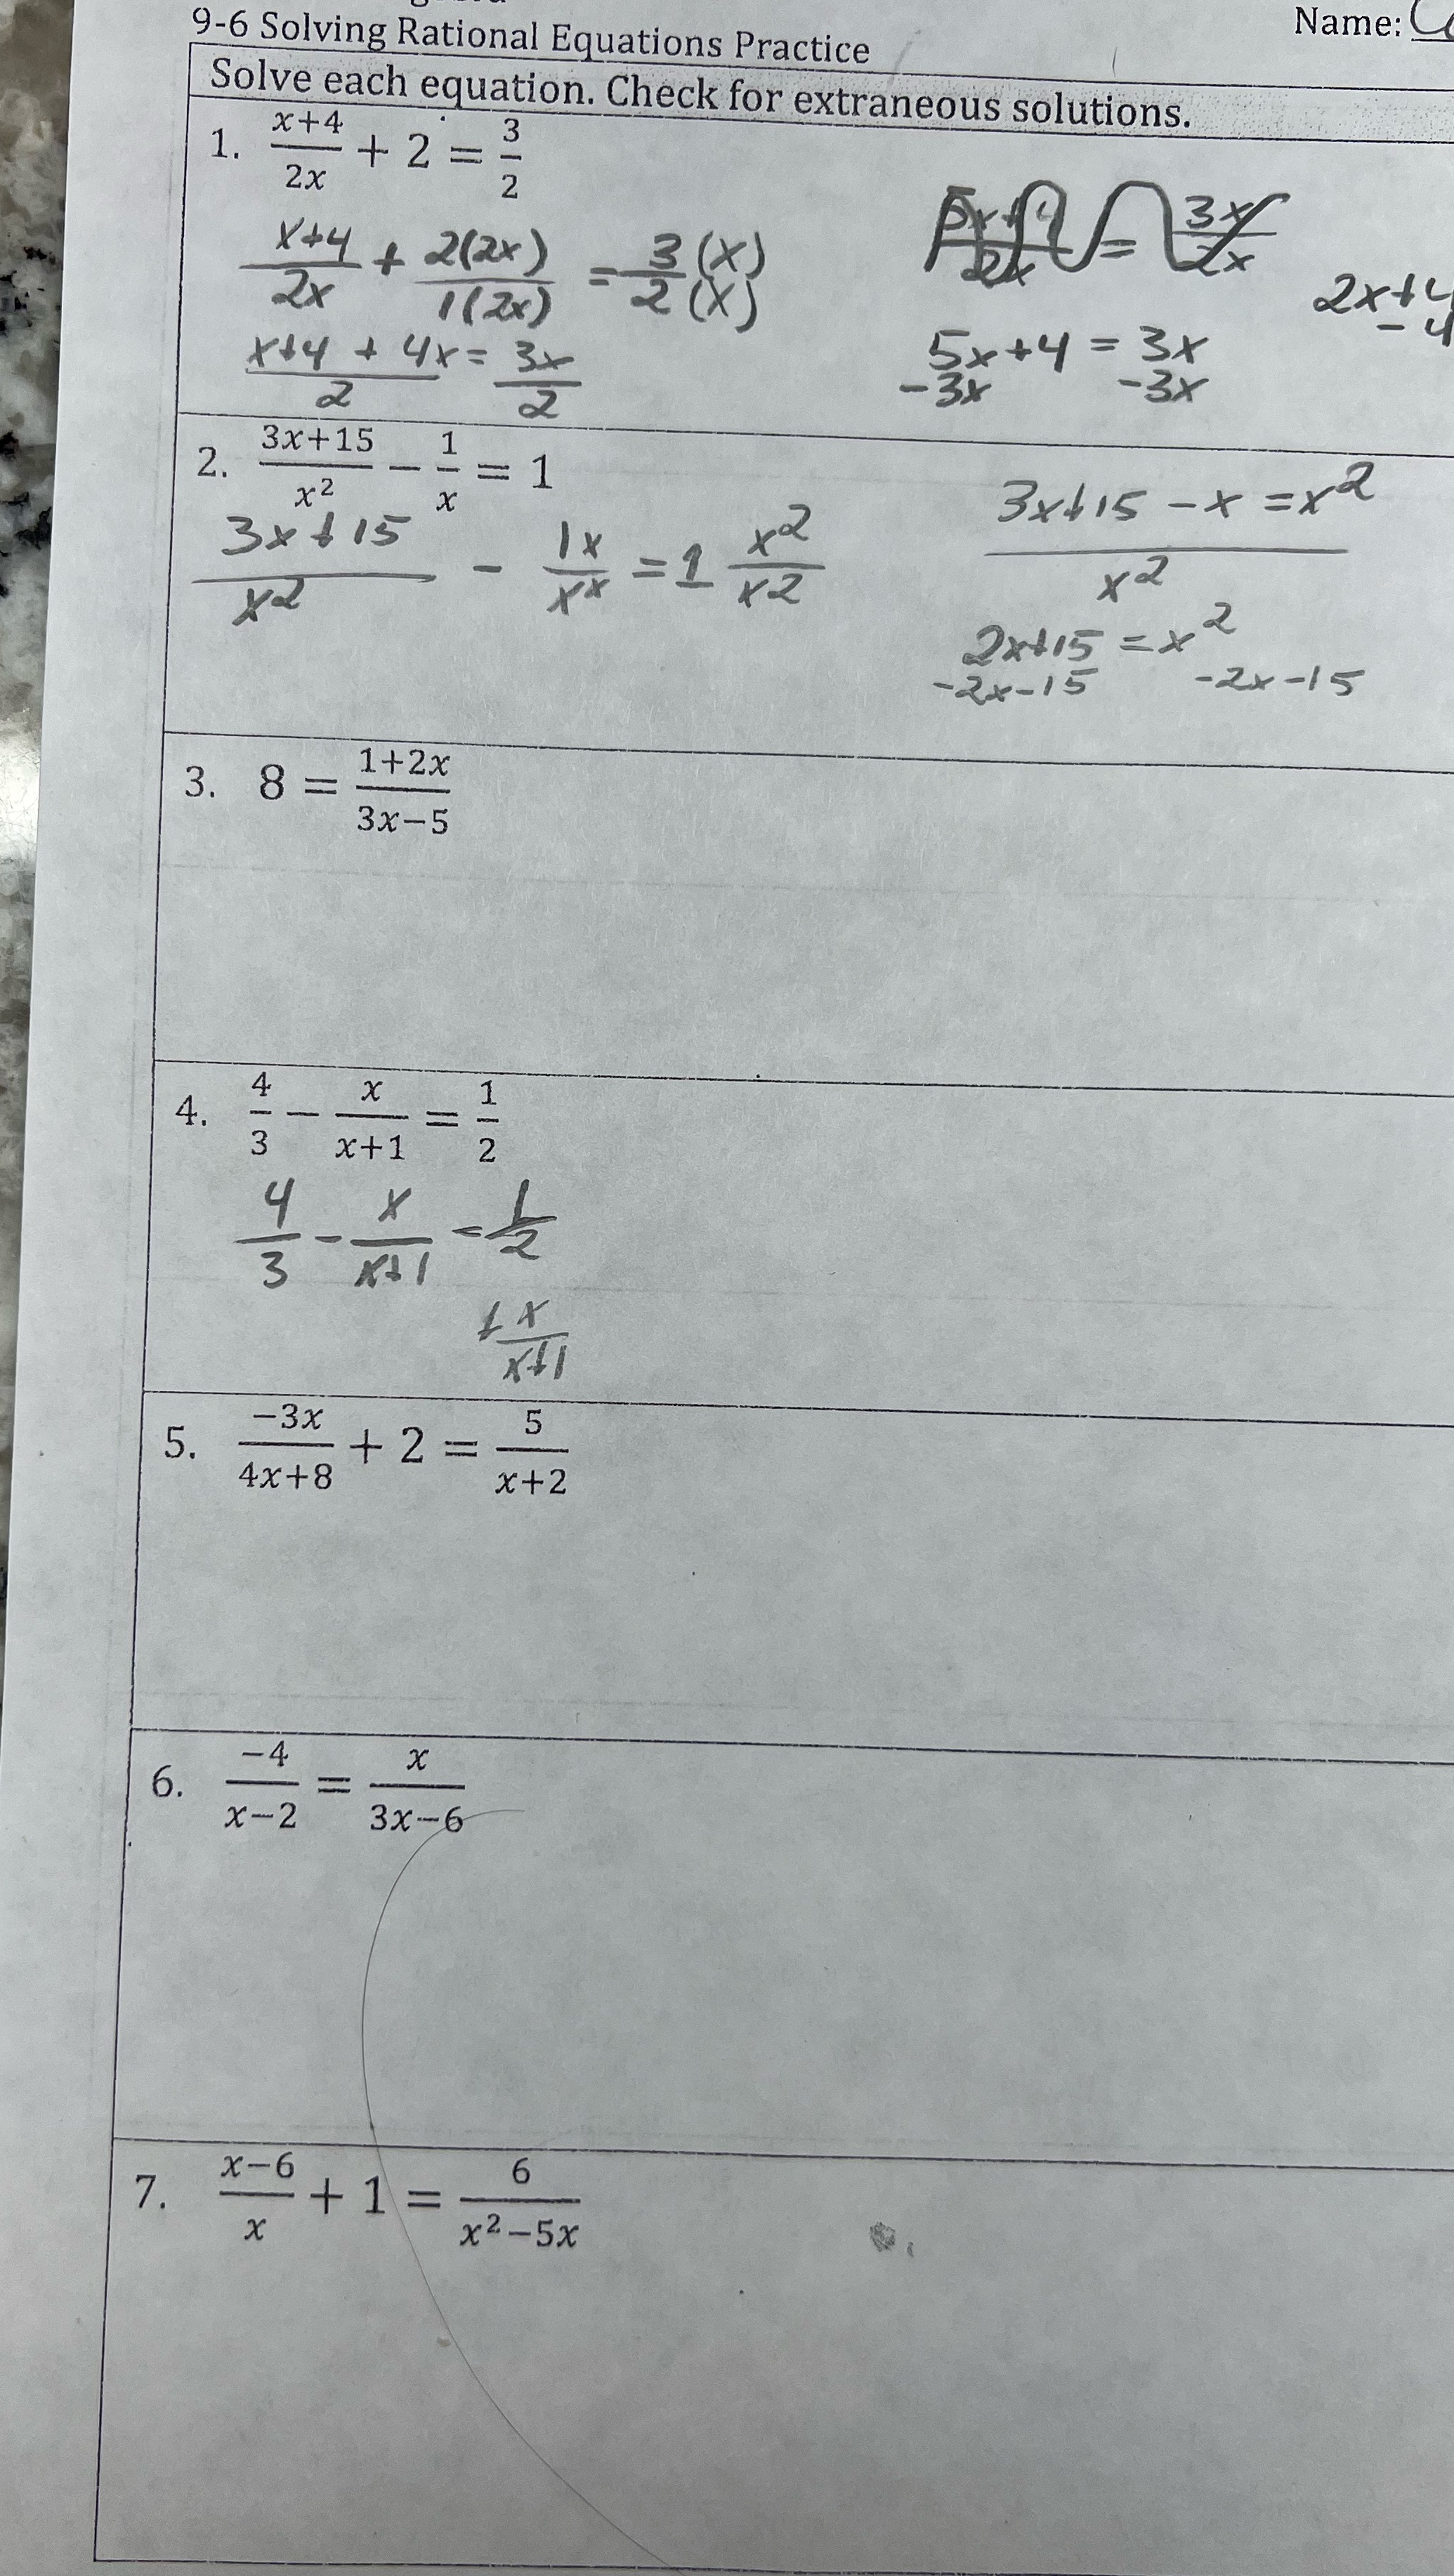 9-6 Solving Rational Equations Practice Name:
Solve each equation. Check for extraneous solutions.
1. (x+4)/(2x) + 2 = 3/2
(x+4)/(2x) + 2(2x)/1(2x) = 3(x)/2(x)
(x+4 + 4x)/2 = 3x/2
3x/2x
5x+4 = 3x
-3x -3x
2x+4
-4
2. (3x+15)/x² − 1/x = 1
(3x+15)/x² - 1x/xx = 1 x²/x2
3x+15 - x = x²
x²
2x+15 = x²
-2x-15 -2x-15
3. 8 = (1+2x)/(3x−5)
4. 4/3 − x/(x+1) = 1/2
4/3 - x/(x+1) = 1/2
x/(x+1)
5. −3x/(4x+8) + 2 = 5/(x+2)
6. −4/(x−2) = x/(3x−6)
7. (x−6)/x + 1 = 6/(x²−5x)